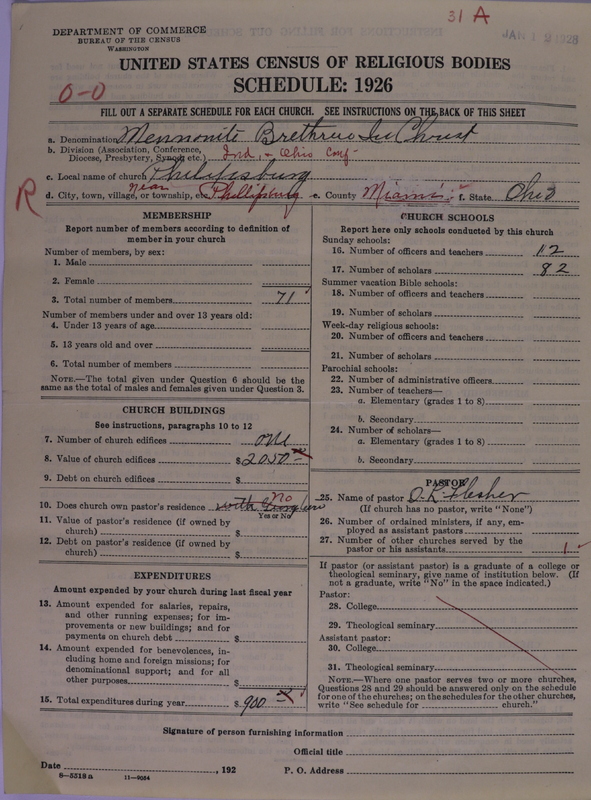 31 A
DEPARTMENT OF COMMERCE
BUREAU OF THE CENSUS
WASHINGTON
JAN 1 2 1928
UNITED STATES CENSUS OF RELIGIOUS BODIES
SCHEDULE: 1926
0-0
FILL OUT A SEPARATE SCHEDULE FOR EACH CHURCH. SEE INSTRUCTIONS ON THE BACK OF THIS SHEET
a. Denomination Mennonite Brethren In Christ
b. Division (Association, Conference, Diocese, Presbytery, Synod, etc.) Ind. & Ohio Conf
c. Local name of church Philipsburg
R
d. City, town, village, or township, etc. near Phillipsburg e. County Miami f. State Ohio
MEMBERSHIP
Report number of members according to definition of
member in your church
Number of members, by sex:
1. Male
2. Female
3. Total number of members 71
Number of members under and over 13 years old:
4. Under 13 years of age
5. 13 years old and over
6. Total number of members
NOTE.—The total given under Question 6 should be
same as the total of males and females given under Question 3.
CHURCH BUILDINGS
See instructions, paragraphs 10 to 12
7. Number of church edifices one
8. Value of church edifices $2050
9. Debt on church edifices $
10. Does church own pastor's residence No
Yes or No
11. Value of pastor's residence (if owned by
church) $
12. Debt on pastor's residence (if owned by
church) $
EXPENDITURES
Amount expended by your church during last fiscal year
13. Amount expended for salaries, repairs,
and other running expenses; for im-
provements or new buildings; and for
payments on church debt $
14. Amount expended for benevolences, in-
cluding home and foreign missions; for
denominational support; and for all
other purposes $
15. Total expenditures during year $ 900
CHURCH SCHOOLS
Report here only schools conducted by this church
Sunday schools:
16. Number of officers and teachers 12
17. Number of scholars 82
Summer vacation Bible schools:
18. Number of officers and teachers
19. Number of scholars
Week-day religious schools:
20. Number of officers and teachers
21. Number of scholars
Parochial schools:
22. Number of administrative officers
23. Number of teachers—
a. Elementary (grades 1 to 8)
b. Secondary
24. Number of scholars—
a. Elementary (grades 1 to 8)
b. Secondary
PASTOR
25. Name of pastor
(If church has no pastor, write "None")
26. Number of ordained ministers, if any, em-
ployed as assistant pastors
27. Number of other churches served by the
pastor or his assistants 1
If pastor (or assistant pastor) is a graduate of a college or
theological seminary, give name of institution below. (If
not a graduate, write "No" in the space indicated.)
Pastor:
28. College
29. Theological seminary
Assistant pastor:
30. College
31. Theological seminary
NOTE.—Where one pastor serves two or more churches,
Questions 28 and 29 should be answered only on the schedule
for one of the churches; on the schedules for the other churches,
write "See schedule for church."
Signature of person furnishing information
Official title
Date , 192 P. O. Address
8—5518 a 11—9054